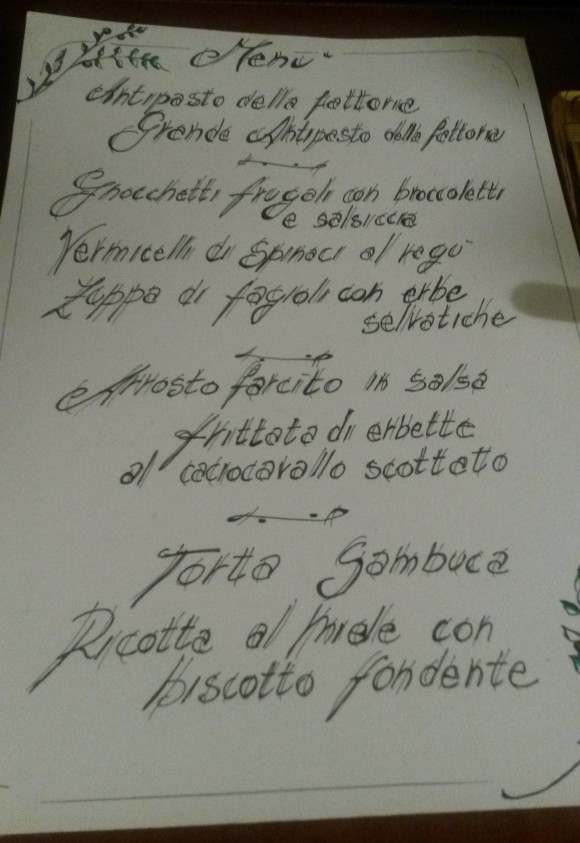 Menù
Antipasto della fattoria
Grande Antipasto della fattoria
Gnocchetti frugali con broccoletti
e salsiccia
Vermicelli di spinaci al ragù
Zuppa di fagioli con erbe
selvatiche
Arrosto farcito in salsa
frittata di erbette
al caciocavallo scottato
Torta Sambuca
Ricotta al miele con
biscotto fondente